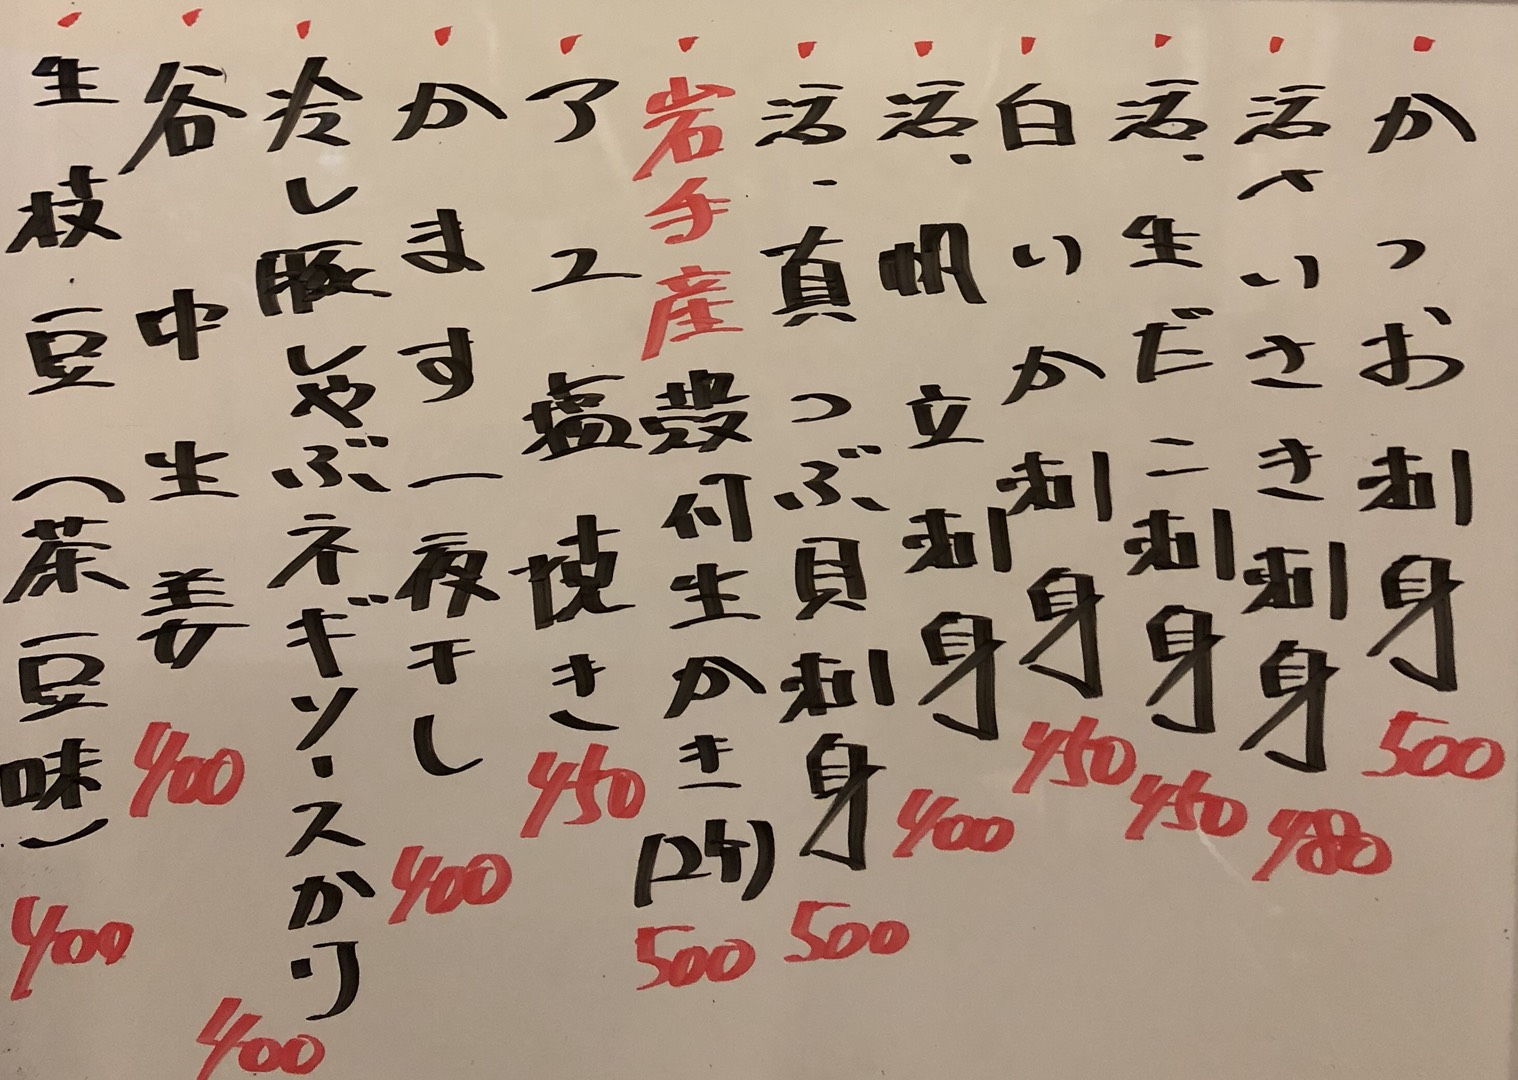 かつお刺身 500
活〆いさき刺身 480
活・生だこ刺身 450
白いか刺身 450
活・帆立刺身 400
活・真つぶ貝刺身 500
岩手産殻付生かき(2ケ) 500
アユ塩焼き 450
かます一夜干し 400
冷し豚しゃぶネギソースかけ 400
谷中生姜 400
生枝豆(茶豆味) 400